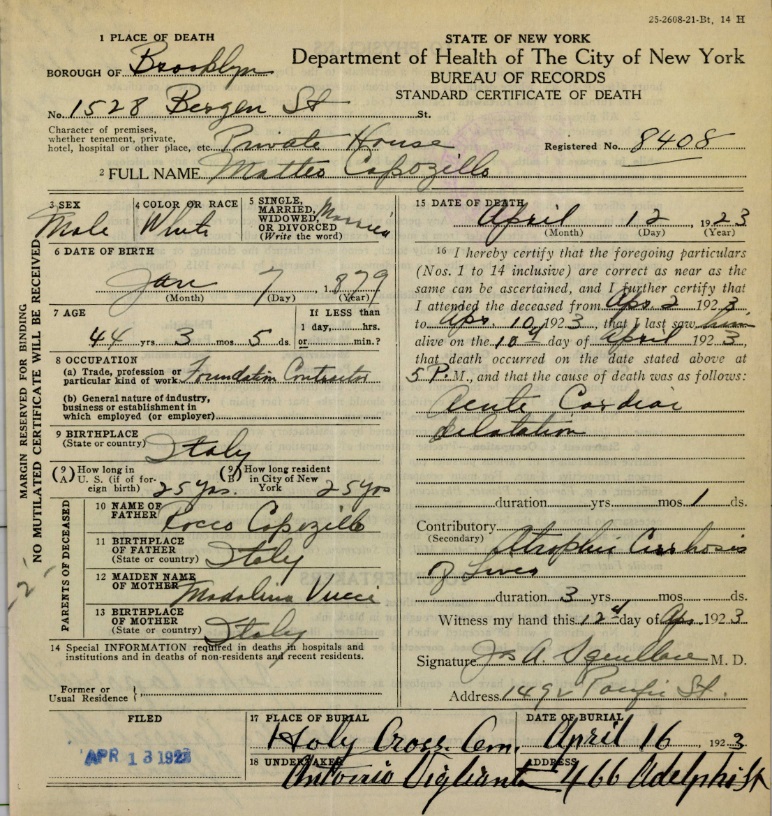 25-2608-21-Bt, 14 H
1 PLACE OF DEATH
STATE OF NEW YORK
Department of Health of The City of New York
BUREAU OF RECORDS
STANDARD CERTIFICATE OF DEATH
BOROUGH OF Brooklyn
No. 1528 Bergen St St.
Character of premises,
whether tenement, private,
hotel, hospital or other place, etc. Private House
Registered No. 8408
2 FULL NAME Matteo Capozillo
3 SEX
Male
4 COLOR OR RACE
White
5 SINGLE,
MARRIED,
WIDOWED,
OR DIVORCED
(Write the word)
Married
6 DATE OF BIRTH
Jan 7 1,879
(Month) (Day) (Year)
7 AGE
44 yrs. 3 mos. 5 ds.
If LESS than
1 day,......hrs.
or......min.?
8 OCCUPATION
(a) Trade, profession or
particular kind of work Foundation Contractor
(b) General nature of industry,
business or establishment in
which employed (or employer)
9 BIRTHPLACE
(State or country) Italy
(9A) How long in
U. S. (if of for-
eign birth) 25 yrs.
(9B) How long resident
in City of New
York 25 yrs
PARENTS OF DECEASED
10 NAME OF
FATHER Rocco Capozillo
11 BIRTHPLACE
OF FATHER
(State or country) Italy
12 MAIDEN NAME
OF MOTHER Madalina Vucci
13 BIRTHPLACE
OF MOTHER
(State or country) Italy
14 Special INFORMATION required in deaths in hospitals and
institutions and in deaths of non-residents and recent residents.
Former or
Usual Residence
MARGIN RESERVED FOR BINDING
NO MUTILATED CERTIFICATE WILL BE RECEIVED
15 DATE OF DEATH
April 12, 1923
(Month) (Day) (Year)
16 I hereby certify that the foregoing particulars
(Nos. 1 to 14 inclusive) are correct as near as the
same can be ascertained, and I further certify that
I attended the deceased from Apr 2 1923,
to Apr 10, 1923, that I last saw him
alive on the 10th day of April 1923,
that death occurred on the date stated above at
5 P.M., and that the cause of death was as follows:
Acute Cardiac
dilatation
duration yrs. mos. 1 ds.
Contributory
(Secondary) Atrophic Cirrhosis
of Liver
duration 3 yrs. mos. ds.
Witness my hand this 12th day of Apr. 1923
Signature Jos A. M. D.
Address 1492 Pacific St.
FILED
APR 13 1923
17 PLACE OF BURIAL
Holy Cross Cem.
DATE OF BURIAL
April 16 1923
18 UNDERTAKER
Antonio Vigliante
ADDRESS
466 Adelphi St